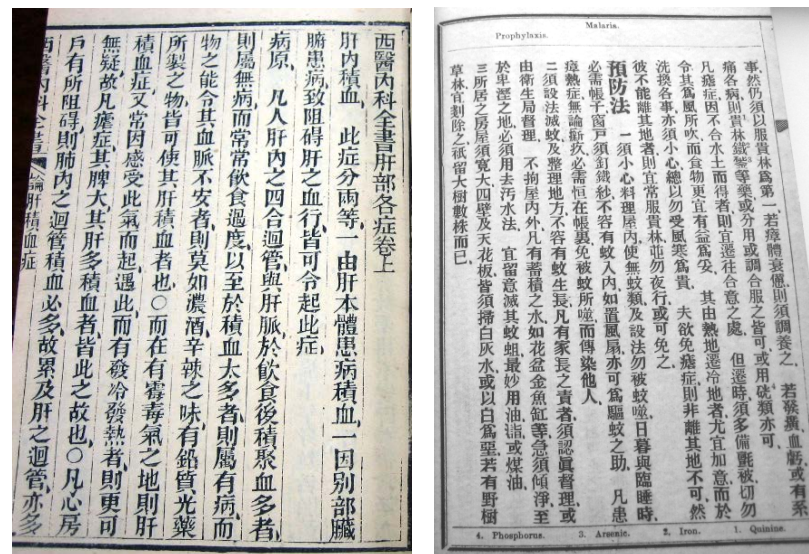 西醫內科全書肝部各症卷上
肝內積血 此症分兩等、一由肝本體患病積血、一因別部臟
腑患病、致阻碍肝之血行、皆可令起此症、
病原 凡人肝內之四合迴管與肝脈、於飲食後積聚血多者、
則屬無病、而常常飲食過度、以至於積血太多者、則屬有病、而
物之能令其血脈不安者、則莫如濃酒、辛辣之味、有鉛質光藥
所製之物、皆可使其肝積血者也○而在有霉毒氣之地、則肝
積血症、又常因感受此氣而起、遇此而有發冷發熱者、則更可
無疑、故凡瘧症、其脾大、其肝多積血者、皆此之故也○凡心房
戶有所阻碍、則肺內之迴管積血必多、故累及肝之迴管、亦多
西醫內科全書 論肝積血症
Malaria.
Prophylaxis.
事、然仍須以服貴林爲第一、若瘴體衰憊、則須調養之、 若發黃血虧或有系
痛各病、則貴林鐵礬等藥、或分用或調合服之皆可、或用硄類亦可、
凡瘧症因不合水土而得者、則宜遷往合意之處、 但遷時須多備氈被、切勿
令其爲風所吹、而食物更宜有益爲妥、 其由熱地遷冷地者、尤宜加意、而於
洗換各事、亦須小心、總以勿受風寒爲貴、 夫欲免瘧症、則非離其地不可、然
彼不能離其地者、則宜常服貴林、並勿夜行、或可免之、
預防法 一須小心料理屋內、使無蚊類、及設法勿被蚊噬、日暮與臨睡時、
必需帳子、窗戶須釘鐵紗、不容有蚊入內、如置風扇、亦可爲驅蚊之助、 凡患
瘴熱症、無論斷疚、必需恒在帳裏、免被蚊所噬而傳染他人、
二須設法滅蚊、及整理地方、不容有蚊生長、凡有家長之責者、須認眞督理、或
由衛生局督理、 不拘屋內外、凡有蓄積之水、如花盆金魚缸等、急須傾淨、至
於卑溼之地、必須用去汚水法、 宜留意滅其蚊蛆、最妙用油𣸣或煤油、
三所居之房屋、須寬大、四壁及天花板、皆須掃白灰水、或以白爲堊、若有野樹
草林、宜剗除之、祇留大樹數株而已、
4. Phosphorus. 3. Arsenic. 2. Iron. 1. Quinine.